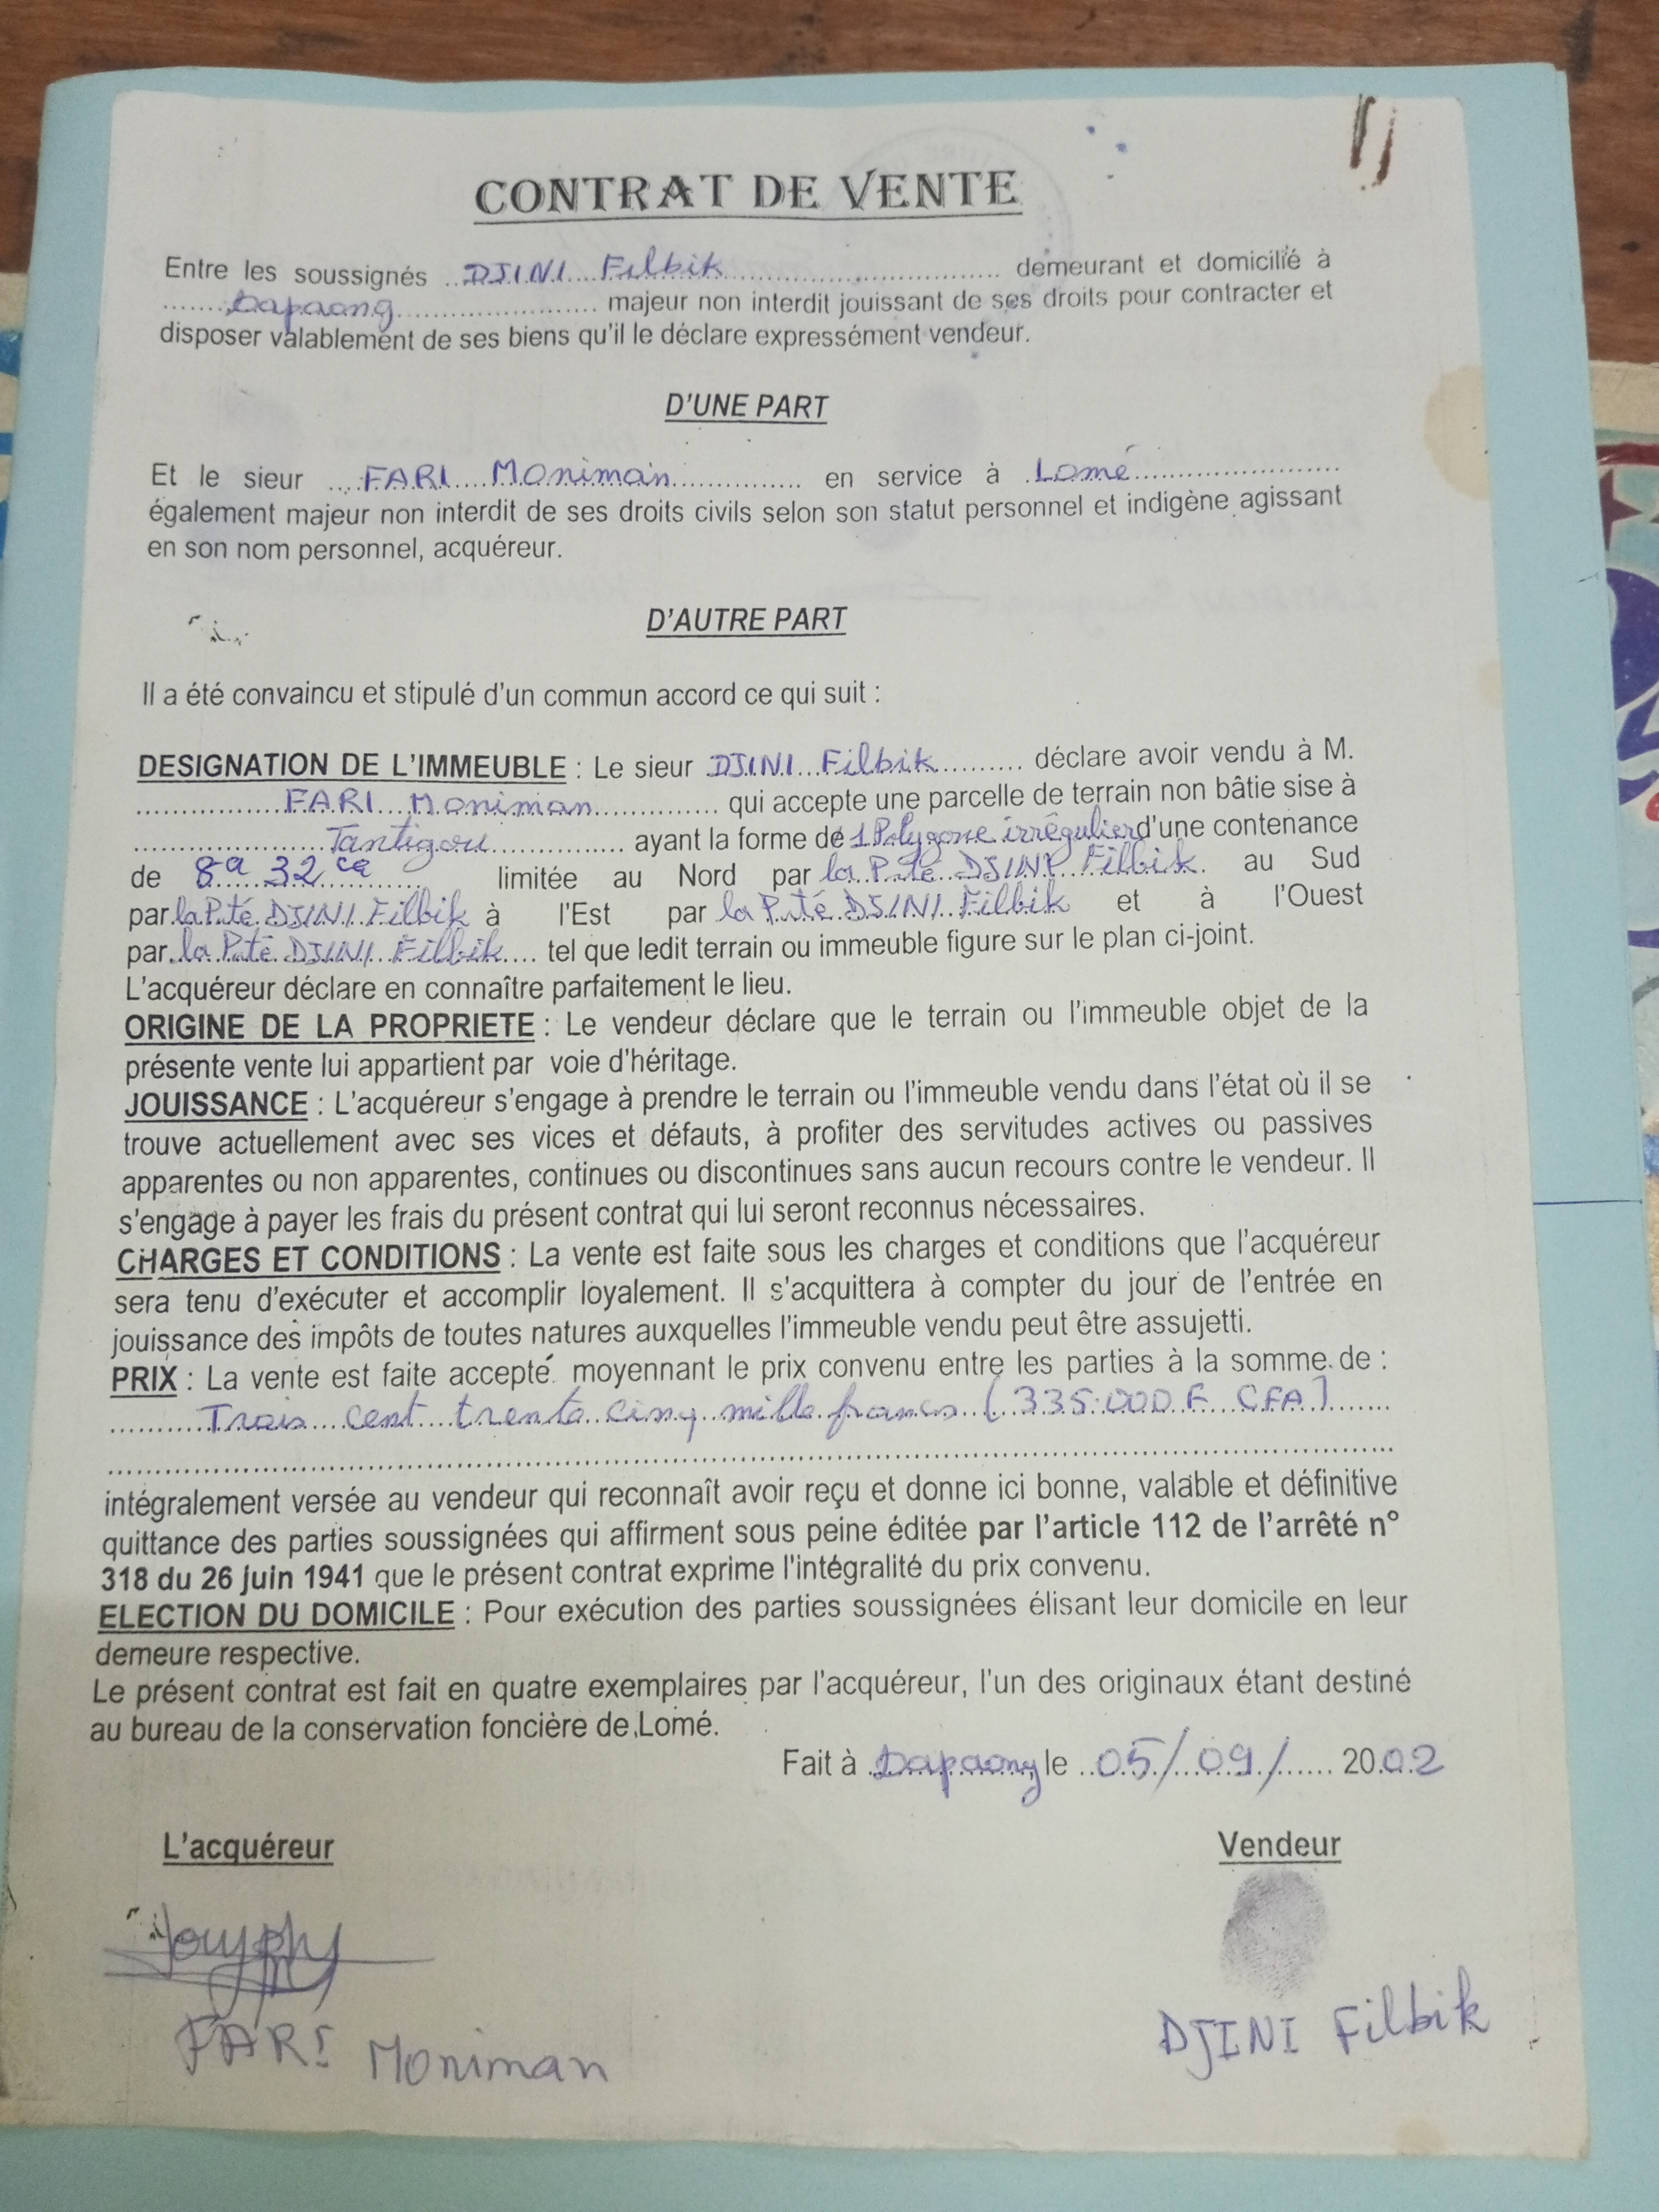 CONTRAT DE VENTE
Entre les soussignés ..DJINI Filbik.............................. demeurant et domicilié à
......Dapaong........................ majeur non interdit jouissant de ses droits pour contracter et
disposer valablement de ses biens qu'il le déclare expressément vendeur.
D'UNE PART
Et le sieur ....FARI....Moniman.............. en service à .Lomé......................
également majeur non interdit de ses droits civils selon son statut personnel et indigène agissant
en son nom personnel, acquéreur.
D'AUTRE PART
Il a été convaincu et stipulé d'un commun accord ce qui suit :
DESIGNATION DE L'IMMEUBLE : Le sieur DJINI...Filbik.......... déclare avoir vendu à M.
................FARI...Moniman.............. qui accepte une parcelle de terrain non bâtie sise à
.....................Tantigou............... ayant la forme de 1 Polygone irrégulier d'une contenance
de 8a 32ca limitée au Nord par la P.té DJINI Filbik. au Sud
par la P.té DJINI Filbik à l'Est par la P.té DJINI Filbik et à l'Ouest
par..la P.té DJINI Filbik.... tel que ledit terrain ou immeuble figure sur le plan ci-joint.
L'acquéreur déclare en connaître parfaitement le lieu.
ORIGINE DE LA PROPRIETE : Le vendeur déclare que le terrain ou l'immeuble objet de la
présente vente lui appartient par voie d'héritage.
JOUISSANCE : L'acquéreur s'engage à prendre le terrain ou l'immeuble vendu dans l'état où il se
trouve actuellement avec ses vices et défauts, à profiter des servitudes actives ou passives
apparentes ou non apparentes, continues ou discontinues sans aucun recours contre le vendeur. Il
s'engage à payer les frais du présent contrat qui lui seront reconnus nécessaires.
CHARGES ET CONDITIONS : La vente est faite sous les charges et conditions que l'acquéreur
sera tenu d'exécuter et accomplir loyalement. Il s'acquittera à compter du jour de l'entrée en
jouissance des impôts de toutes natures auxquelles l'immeuble vendu peut être assujetti.
PRIX : La vente est faite accepté moyennant le prix convenu entre les parties à la somme de :
..........Trois...cent...trente..cinq...mille.francs..(335.000 F CFA).......
intégralement versée au vendeur qui reconnaît avoir reçu et donne ici bonne, valable et définitive
quittance des parties soussignées qui affirment sous peine éditée par l'article 112 de l'arrêté n°
318 du 26 juin 1941 que le présent contrat exprime l'intégralité du prix convenu.
ELECTION DU DOMICILE : Pour exécution des parties soussignées élisant leur domicile en leur
demeure respective.
Le présent contrat est fait en quatre exemplaires par l'acquéreur, l'un des originaux étant destiné
au bureau de la conservation foncière de Lomé.
Fait à Dapaong le ..05/..09./...... 20.02
L'acquéreur Vendeur
FARI Moniman DJINI Filbik